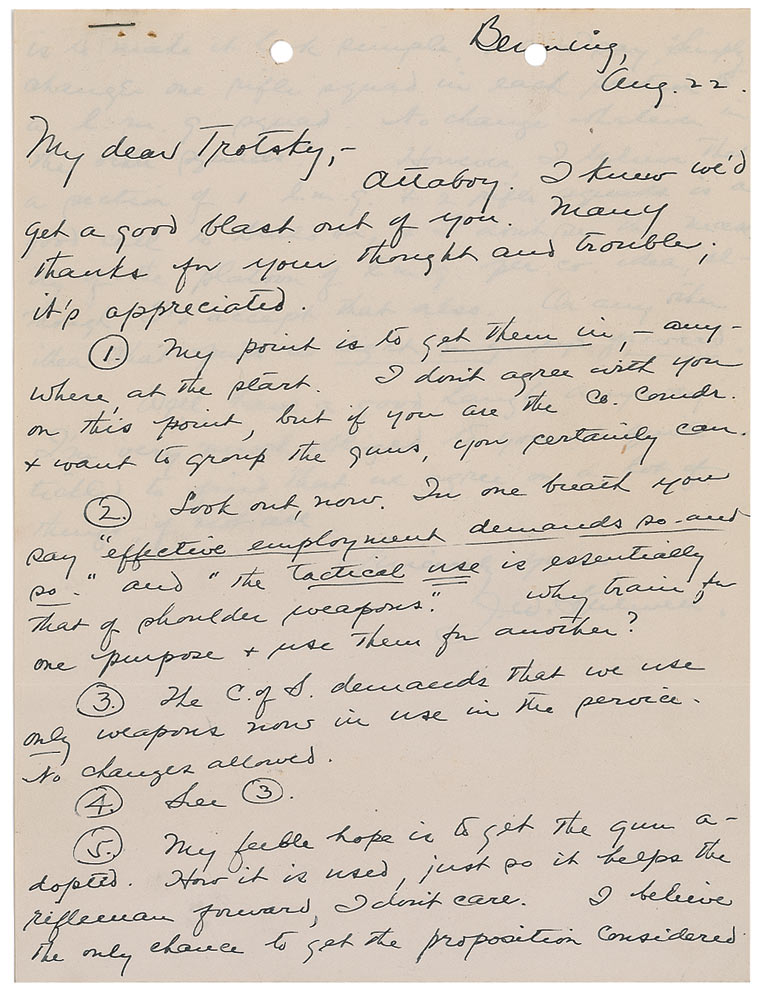 Benning,
Aug. 22.
My dear Trotsky,-
Attaboy. I knew we'd
get a good blast out of you. Many
thanks for your thought and trouble;
it's appreciated.
1. My point is to get them in, - any-
where, at the start. I don't agree with you
on this point, but if you are the Co. Comdr.
+ want to group the guns, you certainly can.
2. Look out, now. In one breath you
say "effective employment demands so-and
so." and "the tactical use is essentially
that of shoulder weapons." Why train for
one purpose + use them for another?
3. The C. of S. demands that we use
only weapons now in use in the service.
No changes allowed.
4. See 3.
5. My feeble hope is to get the gun a-
dopted. How it is used, just so it helps the
rifleman forward, I don't care. I believe
the only chance to get the proposition considered